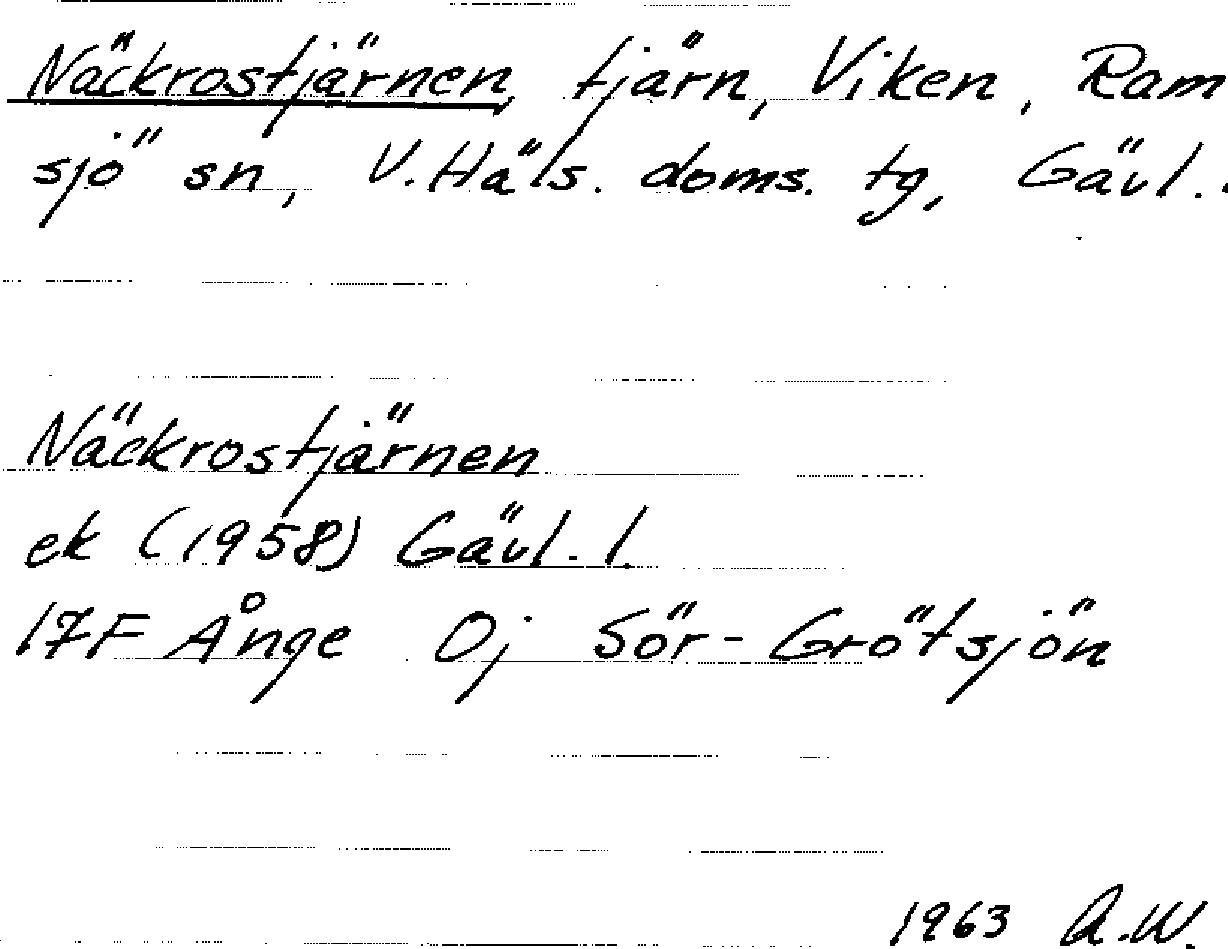 Näckrostjärnen, tjärn, Viken, Ram
sjö sn, V.Häls. doms. tg, Gävl..
Näckrostjärnen
ek (1958) Gävl. l.
17F Ånge 0j Sör-Grötsjön
1963 A.W.